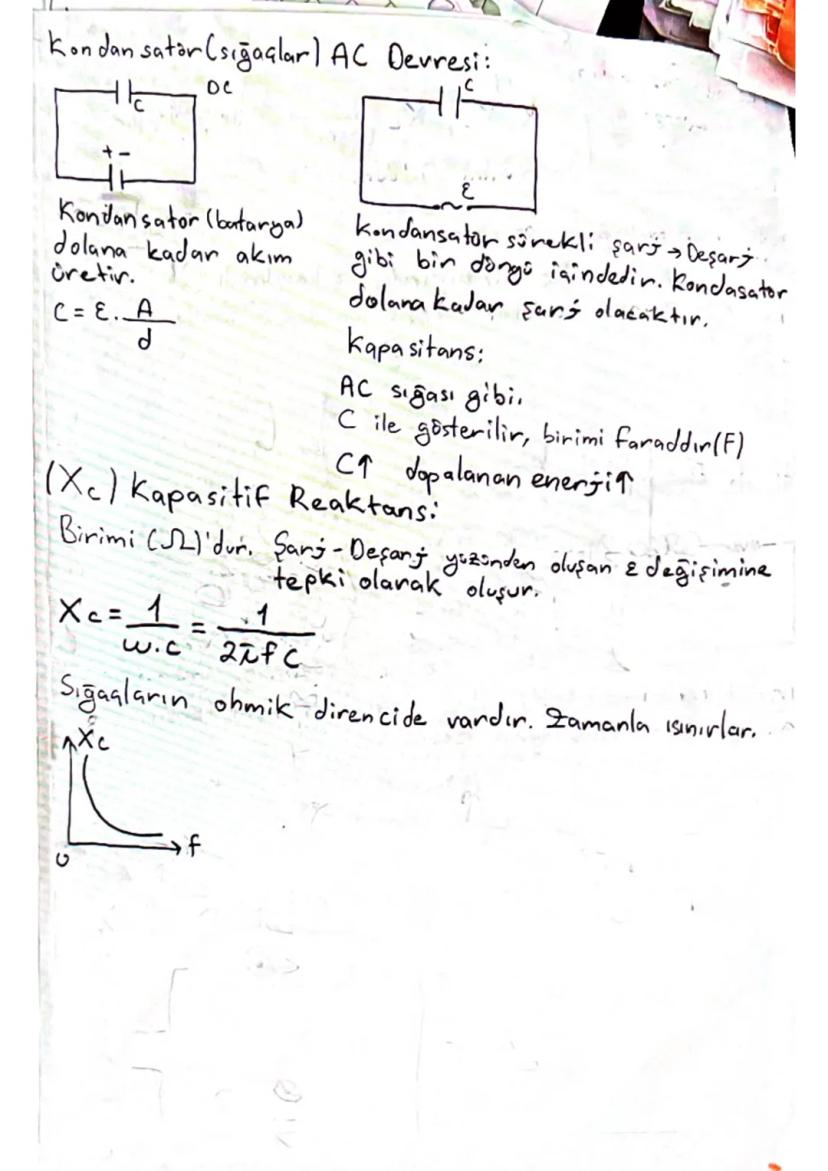 Kondansatör (sığaçlar) AC Devresi:
DC
C
+ -
C
ε
Kondansatör (batarya)
dolana kadar akım
üretir.
C = ε. A/d
Kondansatör sürekli şarj → Deşarj
gibi bir döngü içindedir. Kondasatör
dolana kadar şarj olacaktır.
Kapasitans:
AC sığası gibi.
C ile gösterilir, birimi faraddır (F)
C↑ dopalanan enerji↑
(Xc) Kapasitif Reaktans:
Birimi (Ω)'dur. Şarj - Deşarj yüzünden oluşan ε değişimine
tepki olarak oluşur.
Xc = 1/w.c = 1/2πfC
Sığaçların ohmik direncide vardır. Zamanla ısınırlar.
Xc
f
0